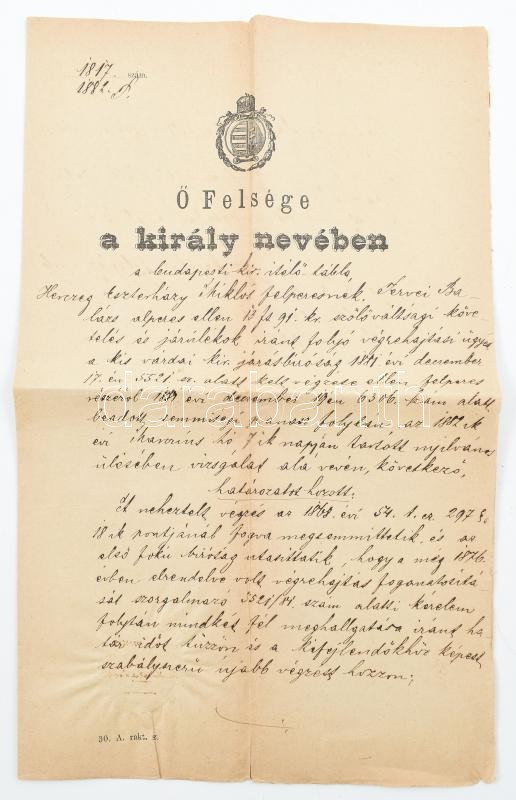 1817 szám.
1882. P.
Ő Felsége
a király nevében
a budapesti kir. itélő tábla,
Herczeg Eszterházy Miklós felperesnek, Tervei Ba-
lázs alperes ellen 13 ft 91. kr. szőlőváltsági köve-
telés és járulékok iránt folyó végrehajtási ügyet
a kis várdai kir. járásbiróság 1881 évi december
17. én 5521 sz. alatt kelt végzése ellen, felperes
részéről 1881 évi december 29 én 6306. szám alatt
beadott semmiségi panasz folytán az 1882 ik
évi Március hó 7 ik napján tartott nyilvános
ülésében vizsgálat alá vevén, következő,
határozatot hozott:
A neheztelt végzés az 1868. évi 54. t. cz. 297 §.
18 ik pontjánál fogva megsemmittetik, és az
első foku biróság utasittatik, hogy a még 1876.
évben elrendelve volt végrehajtás foganatositá-
sát szorgalmazó 5521/81. szám alatti kérelem
folytán mindkét fél meghallgatása iránt ha-
tár időt tüzzön és a kifejlendőkhöz képest
szabályszerü ujabb végzést hozzon;
30. A. rakt. sz.
darabanth